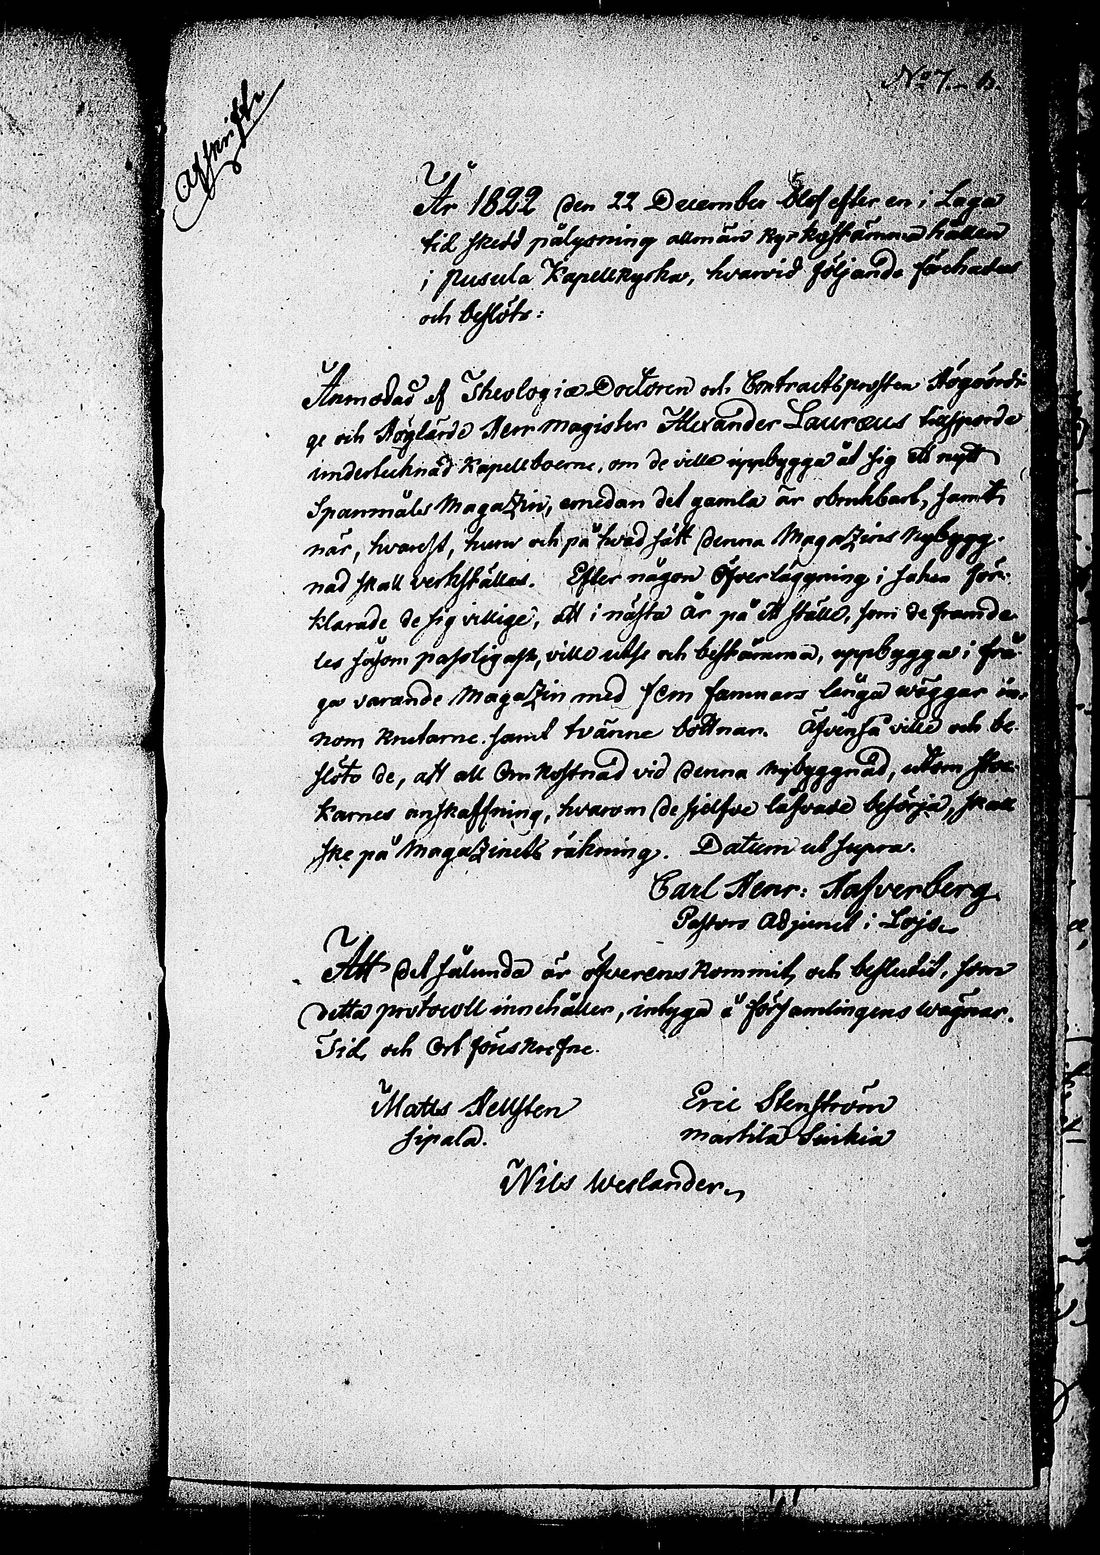 No 7. b.
Afskrift
År 1822 den 22 December blef efter en i Laga
tid skedd pålysning allmän Kyrkostämma hållen
i Pusula Kapellkyrka, hvarvid följande förehades
och beslöts:
Anmodad af Theologiæ Doctoren och Contractsprosten Högvördi
ge och Höglärde Herr Magister Alexander Lauræus tillsporde
undertecknad Kapellboerne, om de ville uppbygga åt sig ett nytt
Spanmåls Magazin, emedan det gamla är obrukbart, samt
när, hvarest, huru och på hvad sätt denna Magazins Nybygg-
nad skall verkställas. Efter någon Öfverläggning i saken för-
klarade de sig villige, att i nästa År på ett ställe, som de framde-
les såsom passligast, ville utse och bestämma, uppbygga i frå
ga varande Magazin med fem famnars långa väggar in-
nom knutarne samt tvänne bottnar. Äfvenså ville och be-
slöto de, att all Omkostnad vid denna Nybyggnad, utom Stoc-
karnes anskaffning, hvarom de sjelfve låfvade besörja, skall
ske på Magazinets räkning. Datum ut supra.
Carl Henr: Hafverberg
Pastors Adjunct i Lojo
Att det sålunda är öfverenskommit, och beslutit, som
detta protocoll innehåller, intyga å församlingens wägnar.
Tid, och Ort föreskrefne.
Matts Hellsten Eric Stenström
Sipala. Martila Suikia
Nils Weslander